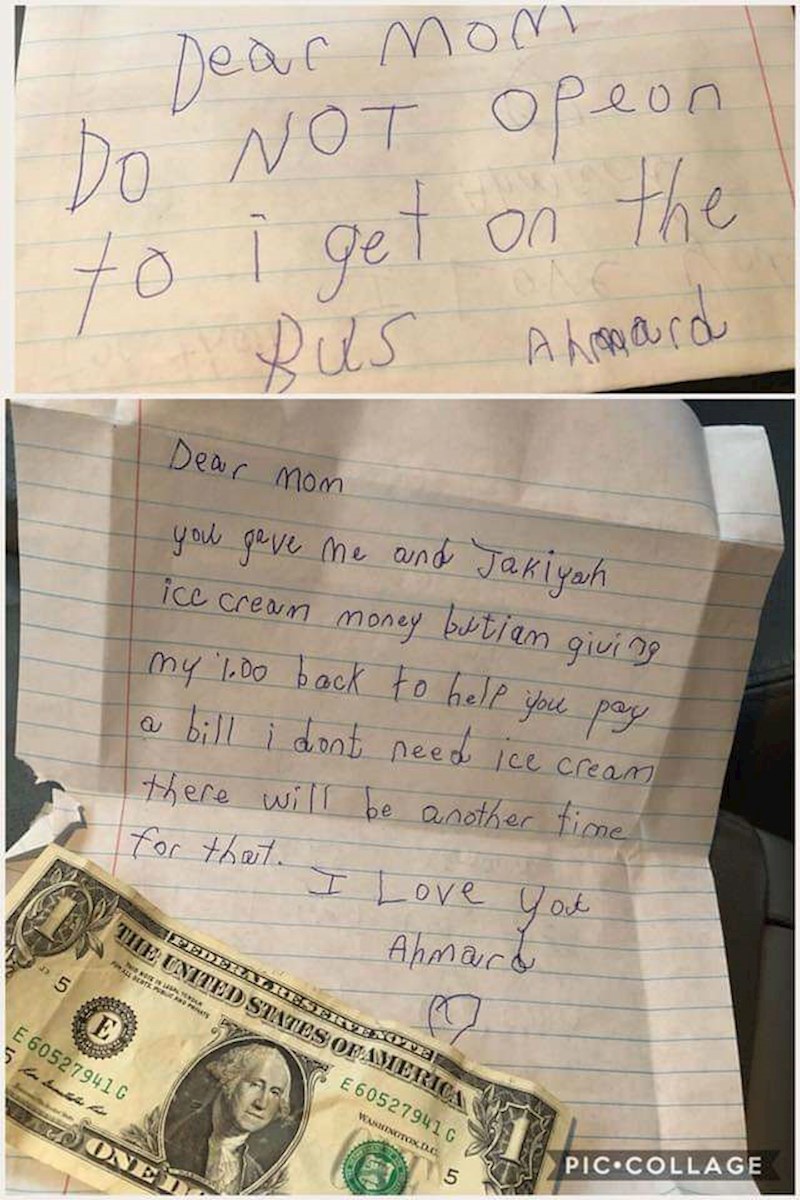 Dear Mom
Do NOT opeon
to i get on the
Bus Ahmard
Dear mom
you gave me and Jakiyah
ice cream money butiam giving
my 1.00 back to help you pay
a bill i dont need ice cream
there will be another time
for that.
I Love you
Ahmard
FEDERAL RESERVE NOTE
THE UNITED STATES OF AMERICA
THIS NOTE IS LEGAL TENDER
FOR ALL DEBTS, PUBLIC AND PRIVATE
1
5
E
E 60527941 G
5
E 60527941 G
WASHINGTON, D.C.
1
5
ONE D
PIC•COLLAGE